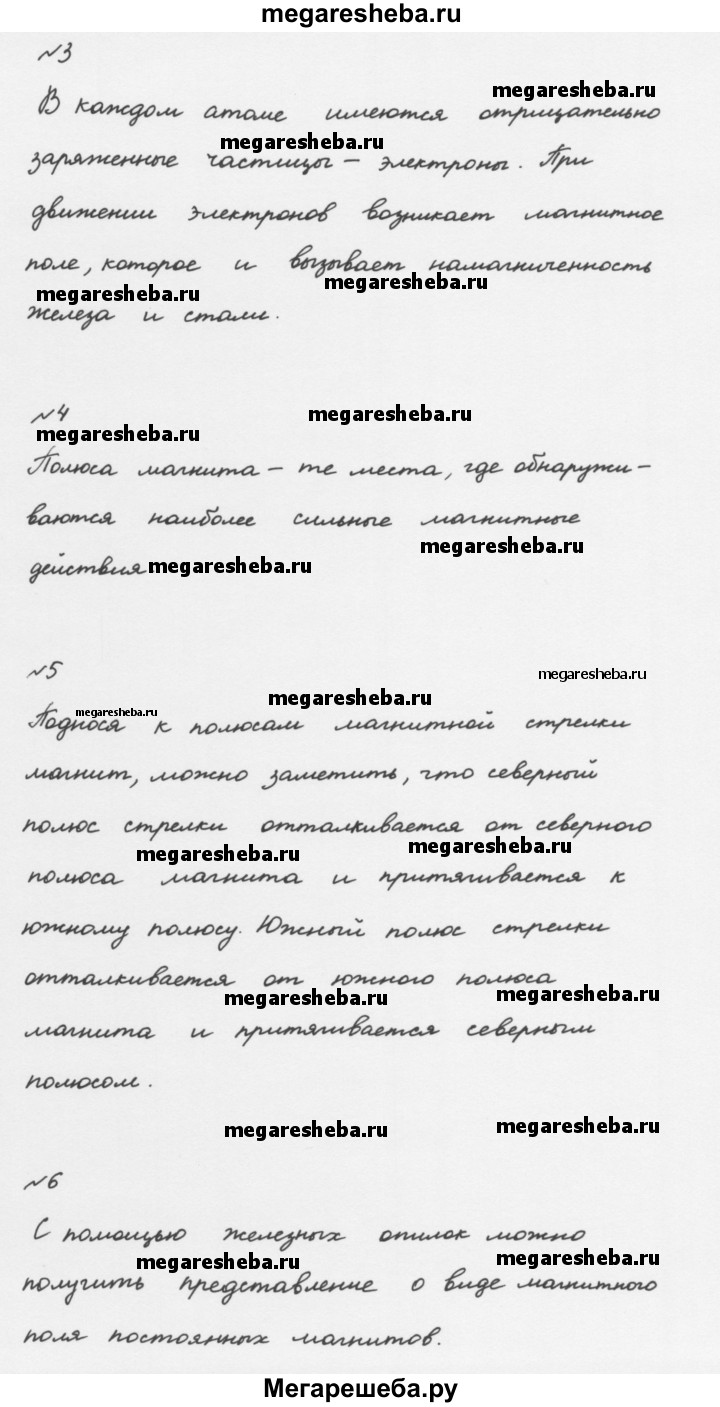 megaresheba.ru
№3
megaresheba.ru
В каждом атоме имеются отрицательно
megaresheba.ru
заряженные частицы – электроны. При
движении электронов возникает магнитное
поле, которое и вызывает намагниченность
megaresheba.ru
megaresheba.ru
железа и стали.
№4
megaresheba.ru
megaresheba.ru
Полюса магнита – те места, где обнаружи-
ваются наиболее сильные магнитные
megaresheba.ru
действия
megaresheba.ru
№5
megaresheba.ru
megaresheba.ru
megaresheba.ru
Поднося к полюсам магнитной стрелки
магнит, можно заметить, что северный
полюс стрелки отталкивается от северного
megaresheba.ru
megaresheba.ru
полюса магнита и притягивается к
южному полюсу. Южный полюс стрелки
отталкивается от южного полюса
megaresheba.ru
megaresheba.ru
магнита и притягивается северным
полюсом.
megaresheba.ru
megaresheba.ru
№6
С помощью железных опилок можно
megaresheba.ru
megaresheba.ru
получить представление о виде магнитного
поля постоянных магнитов.
Мегарешеба.ру